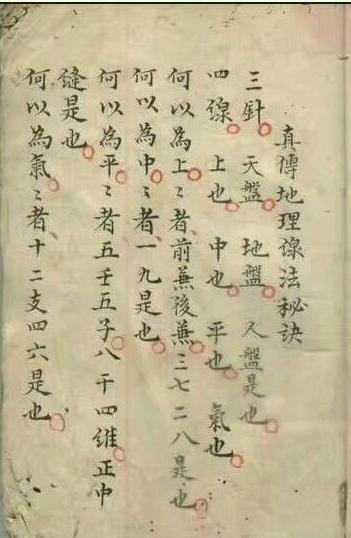 真傳地理線法秘訣
三針 天盤 地盤 人盤是也
四線 上也 中也 平也 氣也
何以為上〻者前兼後兼三七二八是也
何以為中〻者一九是也
何以為平〻者五壬五子八干四維正中
縫是也
何以為氣〻者十二支四六是也